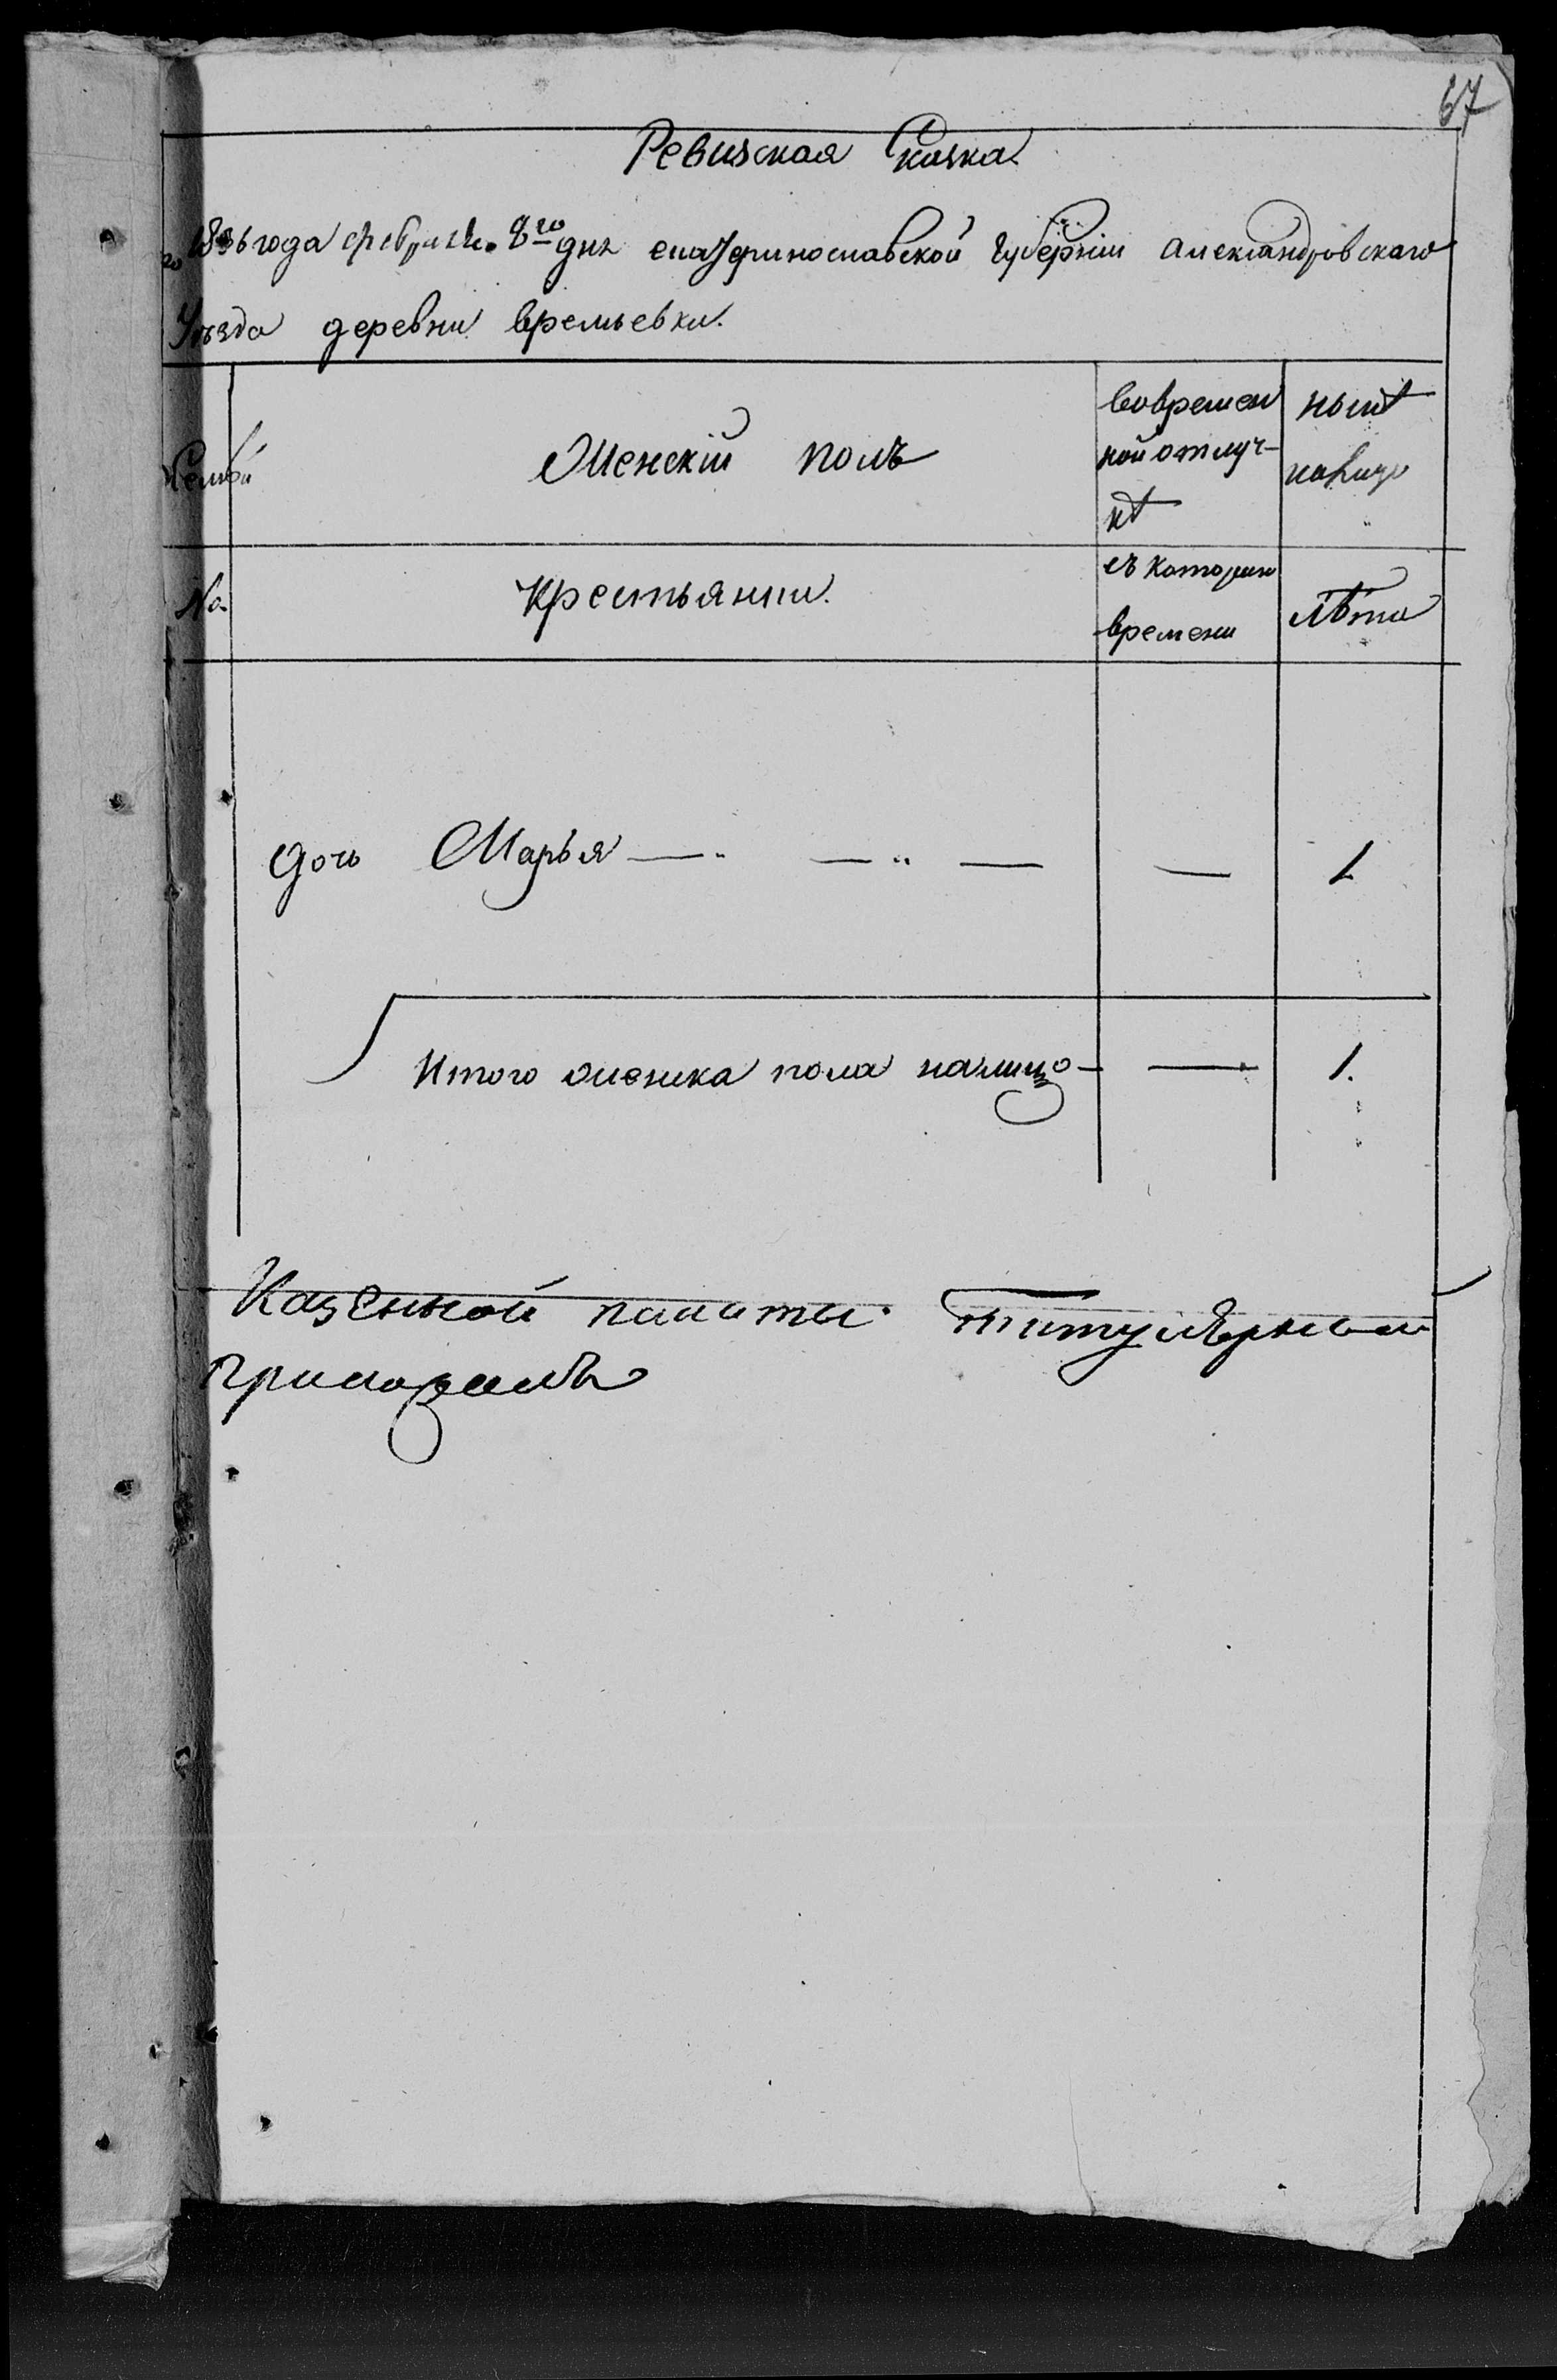 67
Ревизская Сказка
1836 года февраля 8го дня екатеринославской губернии александровскаго
Уезда деревни времьевки.
Семьи
Женскій полъ
Вовремен
ной отлуч-
кѣ
нынѣ
налицо
№
Крестьянии.
съ котораго
времени
лѣта
дочь Марья — " — " — — 1
Итого женска пола налицо — — 1.
Казенной палаты титулярный